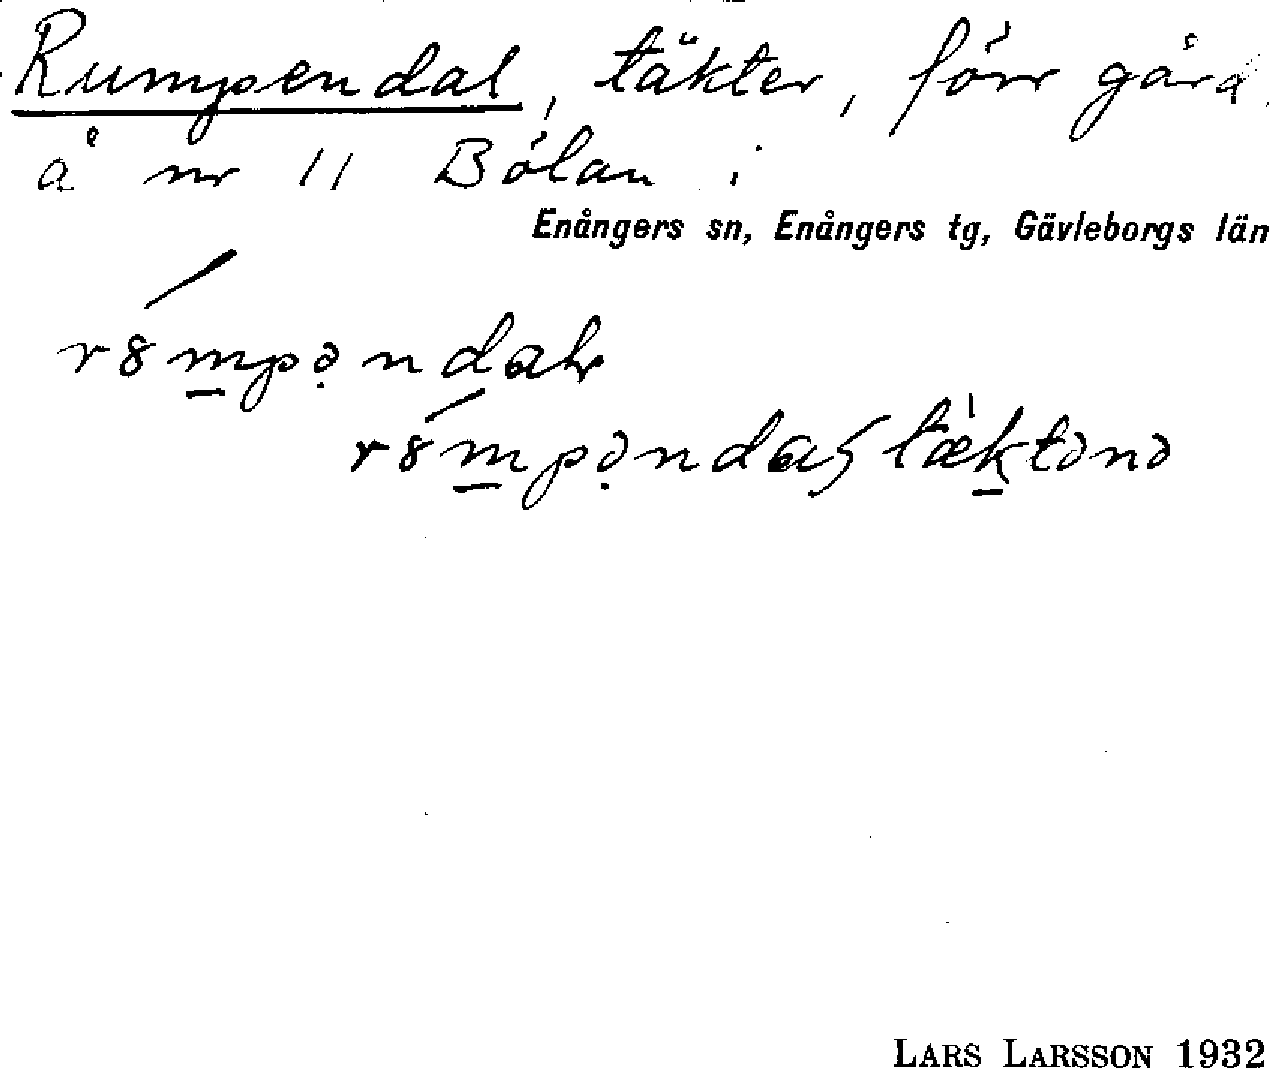 Rumpendal, täkter, förr gård
å nr 11 Bölan i
Enångers sn, Enångers tg, Gävleborgs län
r8mpəndaɫr
r8mpəndaʃtæktənə
LARS LARSSON 1932